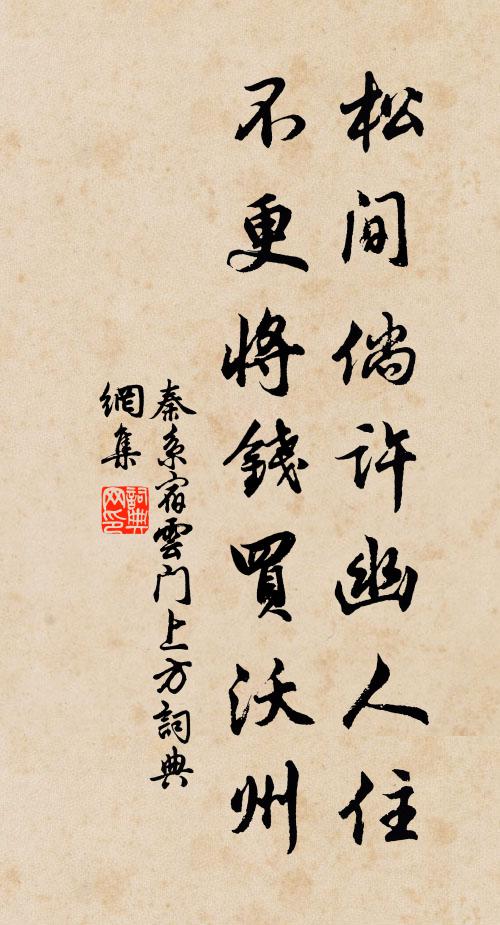 松间倘许幽人住
不更将錢買沃州
秦系宿雲门上方詞典
網集
詞典
网印